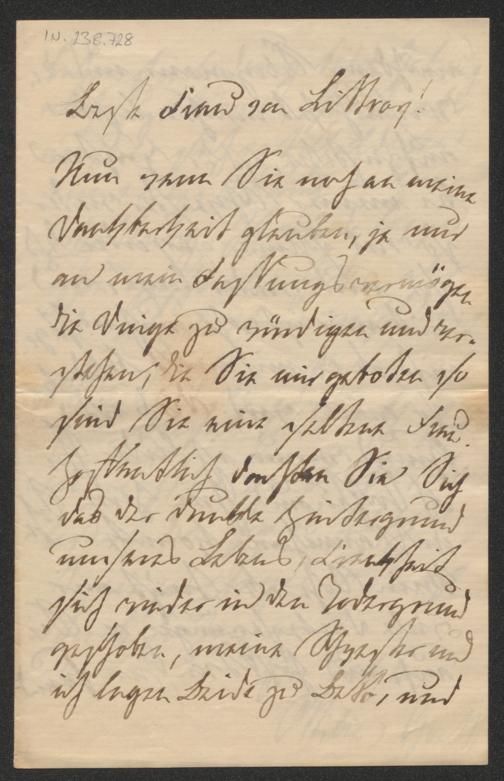 IN. 238.728
Beste Frau von Littrow!
Nun wenn Sie noch an meine
Dankbarkeit glauben, ja nur
an mein Fassungsvermögen
die Dinge zu würdigen und ver-
stehen, die Sie mir geboten so
sind Sie eine seltene Frau.
Hoffentlich dachten Sie Sich
das der dunkle Hintergrund
unseres Lebens, Krankheit
sich wieder in den Vodergrund
geschoben, meine Schwester und
ich lagen Beide zu Bette, und